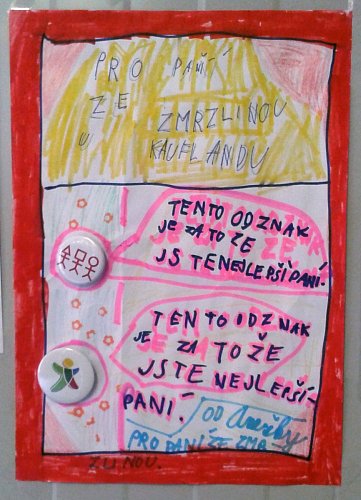 PRO PANÍ
ZE ZMRZLINOU
U KAUFLANDU
TENTO ODZNAK
JE ZA TO ZE
JSTENEJLEPŠÍ PANÍ!
TENTO ODZNAK
JE ZA TO ŽE
JSTE NEJLEPŠÍ-
PANÍ!
OD Anežky
PRO PANÍ ZE ZMR
ZLINOU.